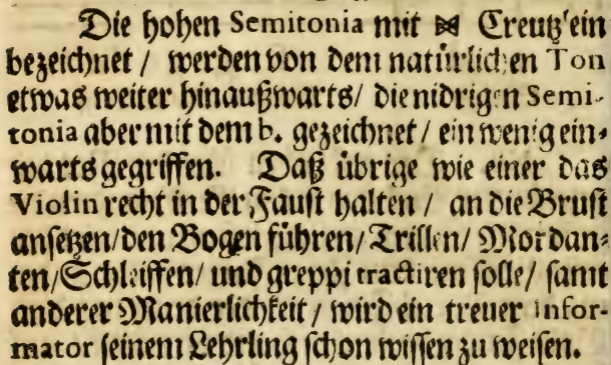 Die hohen Semitonia mit ⋈ Creutz'ein
bezeichnet / werden von dem natürlichen Ton
etwas weiter hinaußwarts / die nidrigen Semi-
tonia aber mit dem b. gezeichnet / ein wenig ein-
warts gegriffen. Daß übrige wie einer das
Violin recht in der Faust halten / an die Brust
ansetzen / den Bogen führen / Trillen / Mordan-
ten / Schleiffen / und greppi tractiren solle / samt
anderer Manierlichkeit / wird ein treuer infor-
mator seinem Lehrling schon wissen zu weisen.